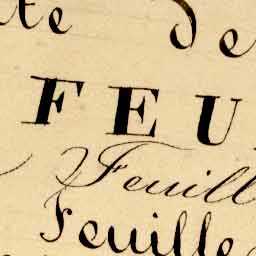 te de
FEU
Feuill
Feuille